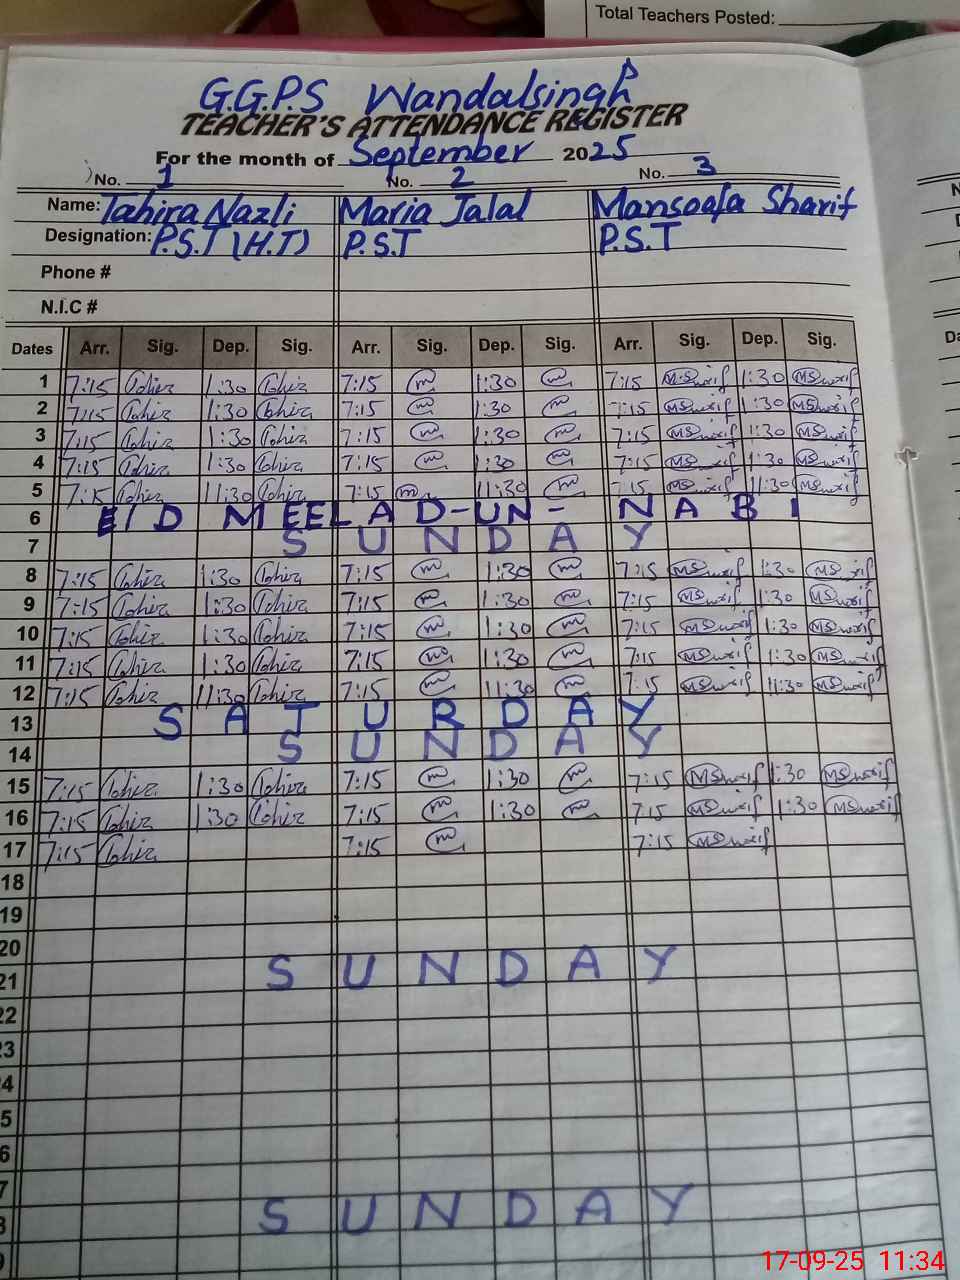 Total Teachers Posted:
G.G.P.S Wandalsingh
TEACHER'S ATTENDANCE REGISTER
For the month of September 2025
No. 1 No. 2 No. 3
Name: Tahira Nazli Maria Jalal Mansoafa Sharif
Designation: P.S.T (H.T) P.S.T P.S.T
Phone #
N.I.C #
Dates Arr. Sig. Dep. Sig. Arr. Sig. Dep. Sig. Arr. Sig. Dep. Sig.
1 7:15 Tahira 1:30 Tahira 7:15 m 1:30 m 7:15 MSharif 1:30 MSharif
2 7:15 Tahira 1:30 Tahira 7:15 m 1:30 m 7:15 MSharif 1:30 MSharif
3 7:15 Tahira 1:30 Tahira 7:15 m 1:30 m 7:15 MSharif 1:30 MSharif
4 7:15 Tahira 1:30 Tahira 7:15 m 1:30 m 7:15 MSharif 1:30 MSharif
5 7:15 Tahira 11:30 Tahira 7:15 m 11:30 m 7:15 MSharif 11:30 MSharif
6 EID MEELAD-UN-NABI
7 SUNDAY
8 7:15 Tahira 1:30 Tahira 7:15 m 1:30 m 7:15 MSharif 1:30 MSharif
9 7:15 Tahira 1:30 Tahira 7:15 m 1:30 m 7:15 MSharif 1:30 MSharif
10 7:15 Tahira 1:30 Tahira 7:15 m 1:30 m 7:15 MSharif 1:30 MSharif
11 7:15 Tahira 1:30 Tahira 7:15 m 1:30 m 7:15 MSharif 1:30 MSharif
12 7:15 Tahira 11:30 Tahira 7:15 m 11:30 m 7:15 MSharif 11:30 MSharif
13 SATURDAY
14 SUNDAY
15 7:15 Tahira 1:30 Tahira 7:15 m 1:30 m 7:15 MSharif 1:30 MSharif
16 7:15 Tahira 1:30 Tahira 7:15 m 1:30 m 7:15 MSharif 1:30 MSharif
17 7:15 Tahira 7:15 m 7:15 MSharif
18
19
20
21 SUNDAY
22
23
4
5
6
7
8 SUNDAY
17-09-25 11:34